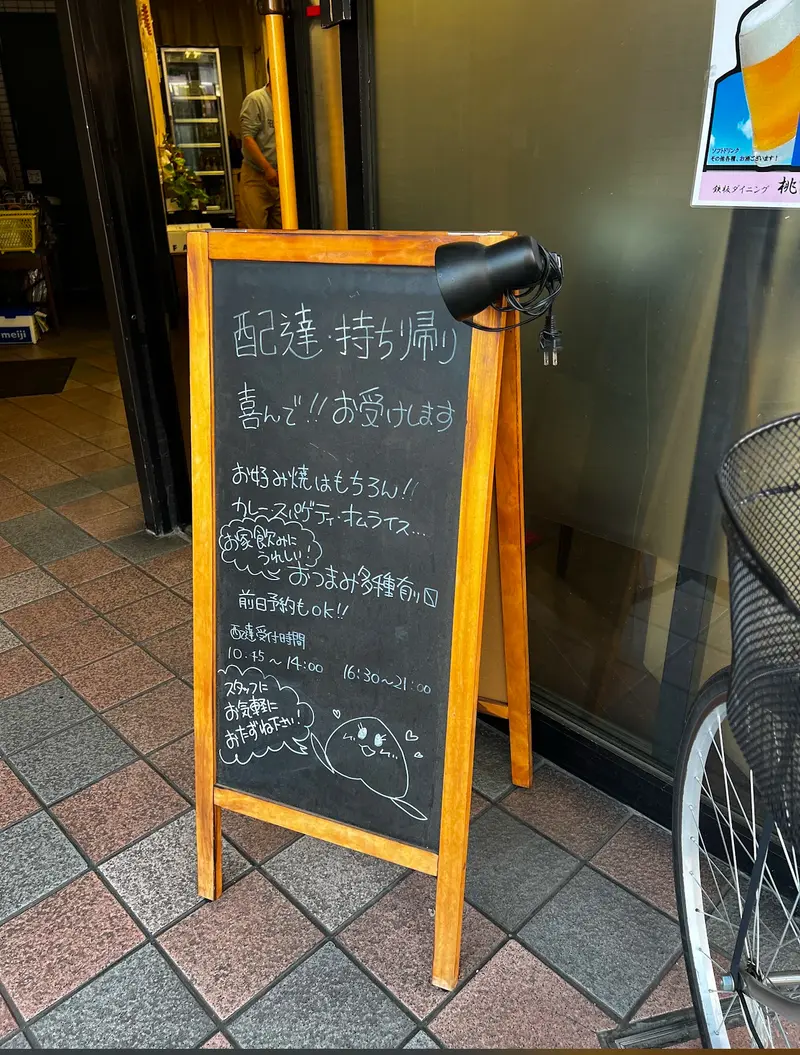 配達・持ち帰り
喜んで!! お受けします
お好み焼はもちろん!!
カレー・スパゲティ・オムライス...
お家飲みに
うれしい!
おつまみ多種有り〼
前日予約もOK!!
配達受付時間
10:45～14:00 16:30～21:00
スタッフに
お気軽に
おたずね下さい!
ソフトドリンク
その他各種、お酒ございます!
鉄板ダイニング 桃
meiji